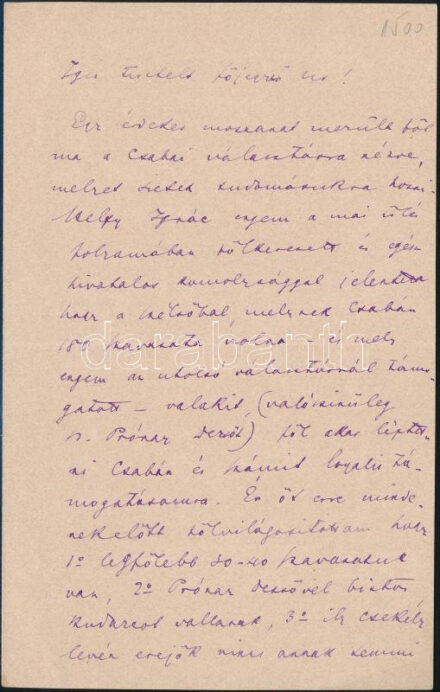 1500
Igen tisztelt főjegyző úr!
Egy érdekes mozzanat merült föl
ma a Csabai választásra nézve,
melyet sietek tudomásukra hozni.
Helfy Ignác engem a mai ülés
folyamában fölkeresett és egész
hivatalos komolysággal jelentette
hogy a szélsőbal, melynek Csabán
180 szavazata volna – és mely
engem az utolsó választásnál támo-
gatott – valakit, (valószinüleg
b. Prónay Dezsőt) föl akar léptet-
ni Csabán és számit loyalis tá-
mogatásomra. Én őt erre minde-
nekelőtt fölvilágositottam hogy
1º legfölebb 30-40 szavazatuk
van, 2º Prónay Dezsővel biztos
kudarcot vallanak, 3º ily csekély
lévén erejök nincs annak semmi
darabanth